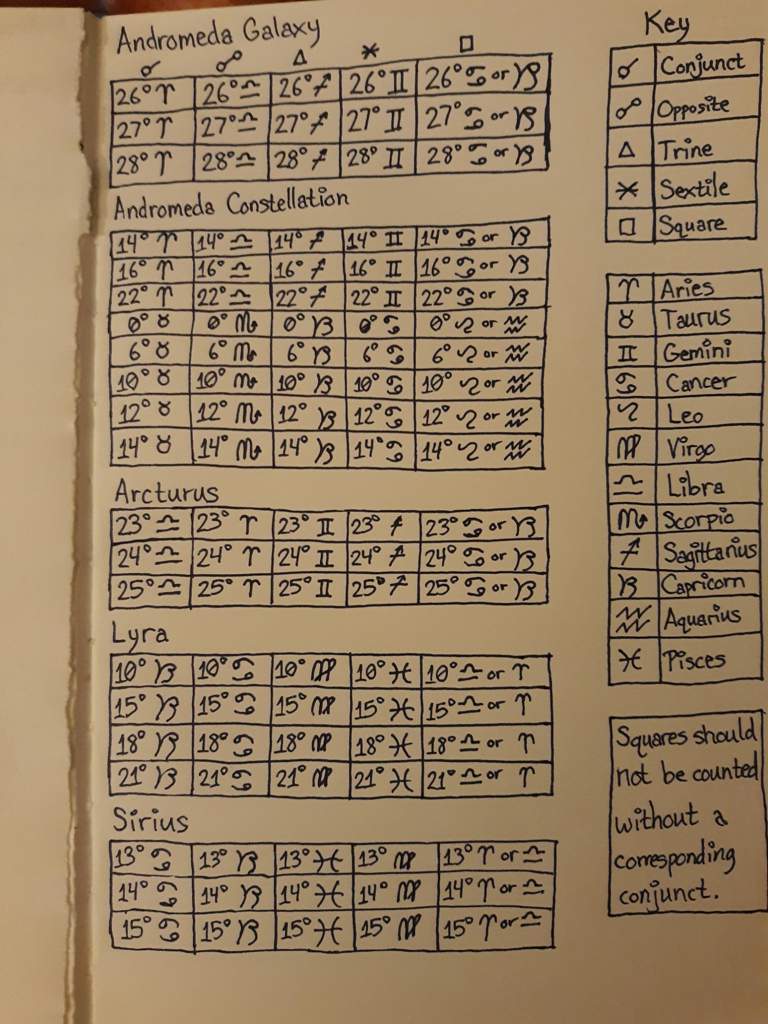 Andromeda Galaxy
☌ ☍ △ ⚹ □
26° ♈ 26° ♎ 26° ♐ 26° ♊ 26° ♋ or ♑
27° ♈ 27° ♎ 27° ♐ 27° ♊ 27° ♋ or ♑
28° ♈ 28° ♎ 28° ♐ 28° ♊ 28° ♋ or ♑
Andromeda Constellation
14° ♈ 14° ♎ 14° ♐ 14° ♊ 14° ♋ or ♑
16° ♈ 16° ♎ 16° ♐ 16° ♊ 16° ♋ or ♑
22° ♈ 22° ♎ 22° ♐ 22° ♊ 22° ♋ or ♑
0° ♉ 0° ♏ 0° ♑ 0° ♋ 0° ♌ or ♒
6° ♉ 6° ♏ 6° ♑ 6° ♋ 6° ♌ or ♒
10° ♉ 10° ♏ 10° ♑ 10° ♋ 10° ♌ or ♒
12° ♉ 12° ♏ 12° ♑ 12° ♋ 12° ♌ or ♒
14° ♉ 14° ♏ 14° ♑ 14° ♋ 14° ♌ or ♒
Arcturus
23° ♎ 23° ♈ 23° ♊ 23° ♐ 23° ♋ or ♑
24° ♎ 24° ♈ 24° ♊ 24° ♐ 24° ♋ or ♑
25° ♎ 25° ♈ 25° ♊ 25° ♐ 25° ♋ or ♑
Lyra
10° ♑ 10° ♋ 10° ♍ 10° ♓ 10° ♎ or ♈
15° ♑ 15° ♋ 15° ♍ 15° ♓ 15° ♎ or ♈
18° ♑ 18° ♋ 18° ♍ 18° ♓ 18° ♎ or ♈
21° ♑ 21° ♋ 21° ♍ 21° ♓ 21° ♎ or ♈
Sirius
13° ♋ 13° ♑ 13° ♓ 13° ♍ 13° ♈ or ♎
14° ♋ 14° ♑ 14° ♓ 14° ♍ 14° ♈ or ♎
15° ♋ 15° ♑ 15° ♓ 15° ♍ 15° ♈ or ♎
Key
☌ Conjunct
☍ Opposite
△ Trine
⚹ Sextile
□ Square
♈ Aries
♉ Taurus
♊ Gemini
♋ Cancer
♌ Leo
♍ Virgo
♎ Libra
♏ Scorpio
♐ Sagittarius
♑ Capricorn
♒ Aquarius
♓ Pisces
Squares should
not be counted
without a
corresponding
conjunct.